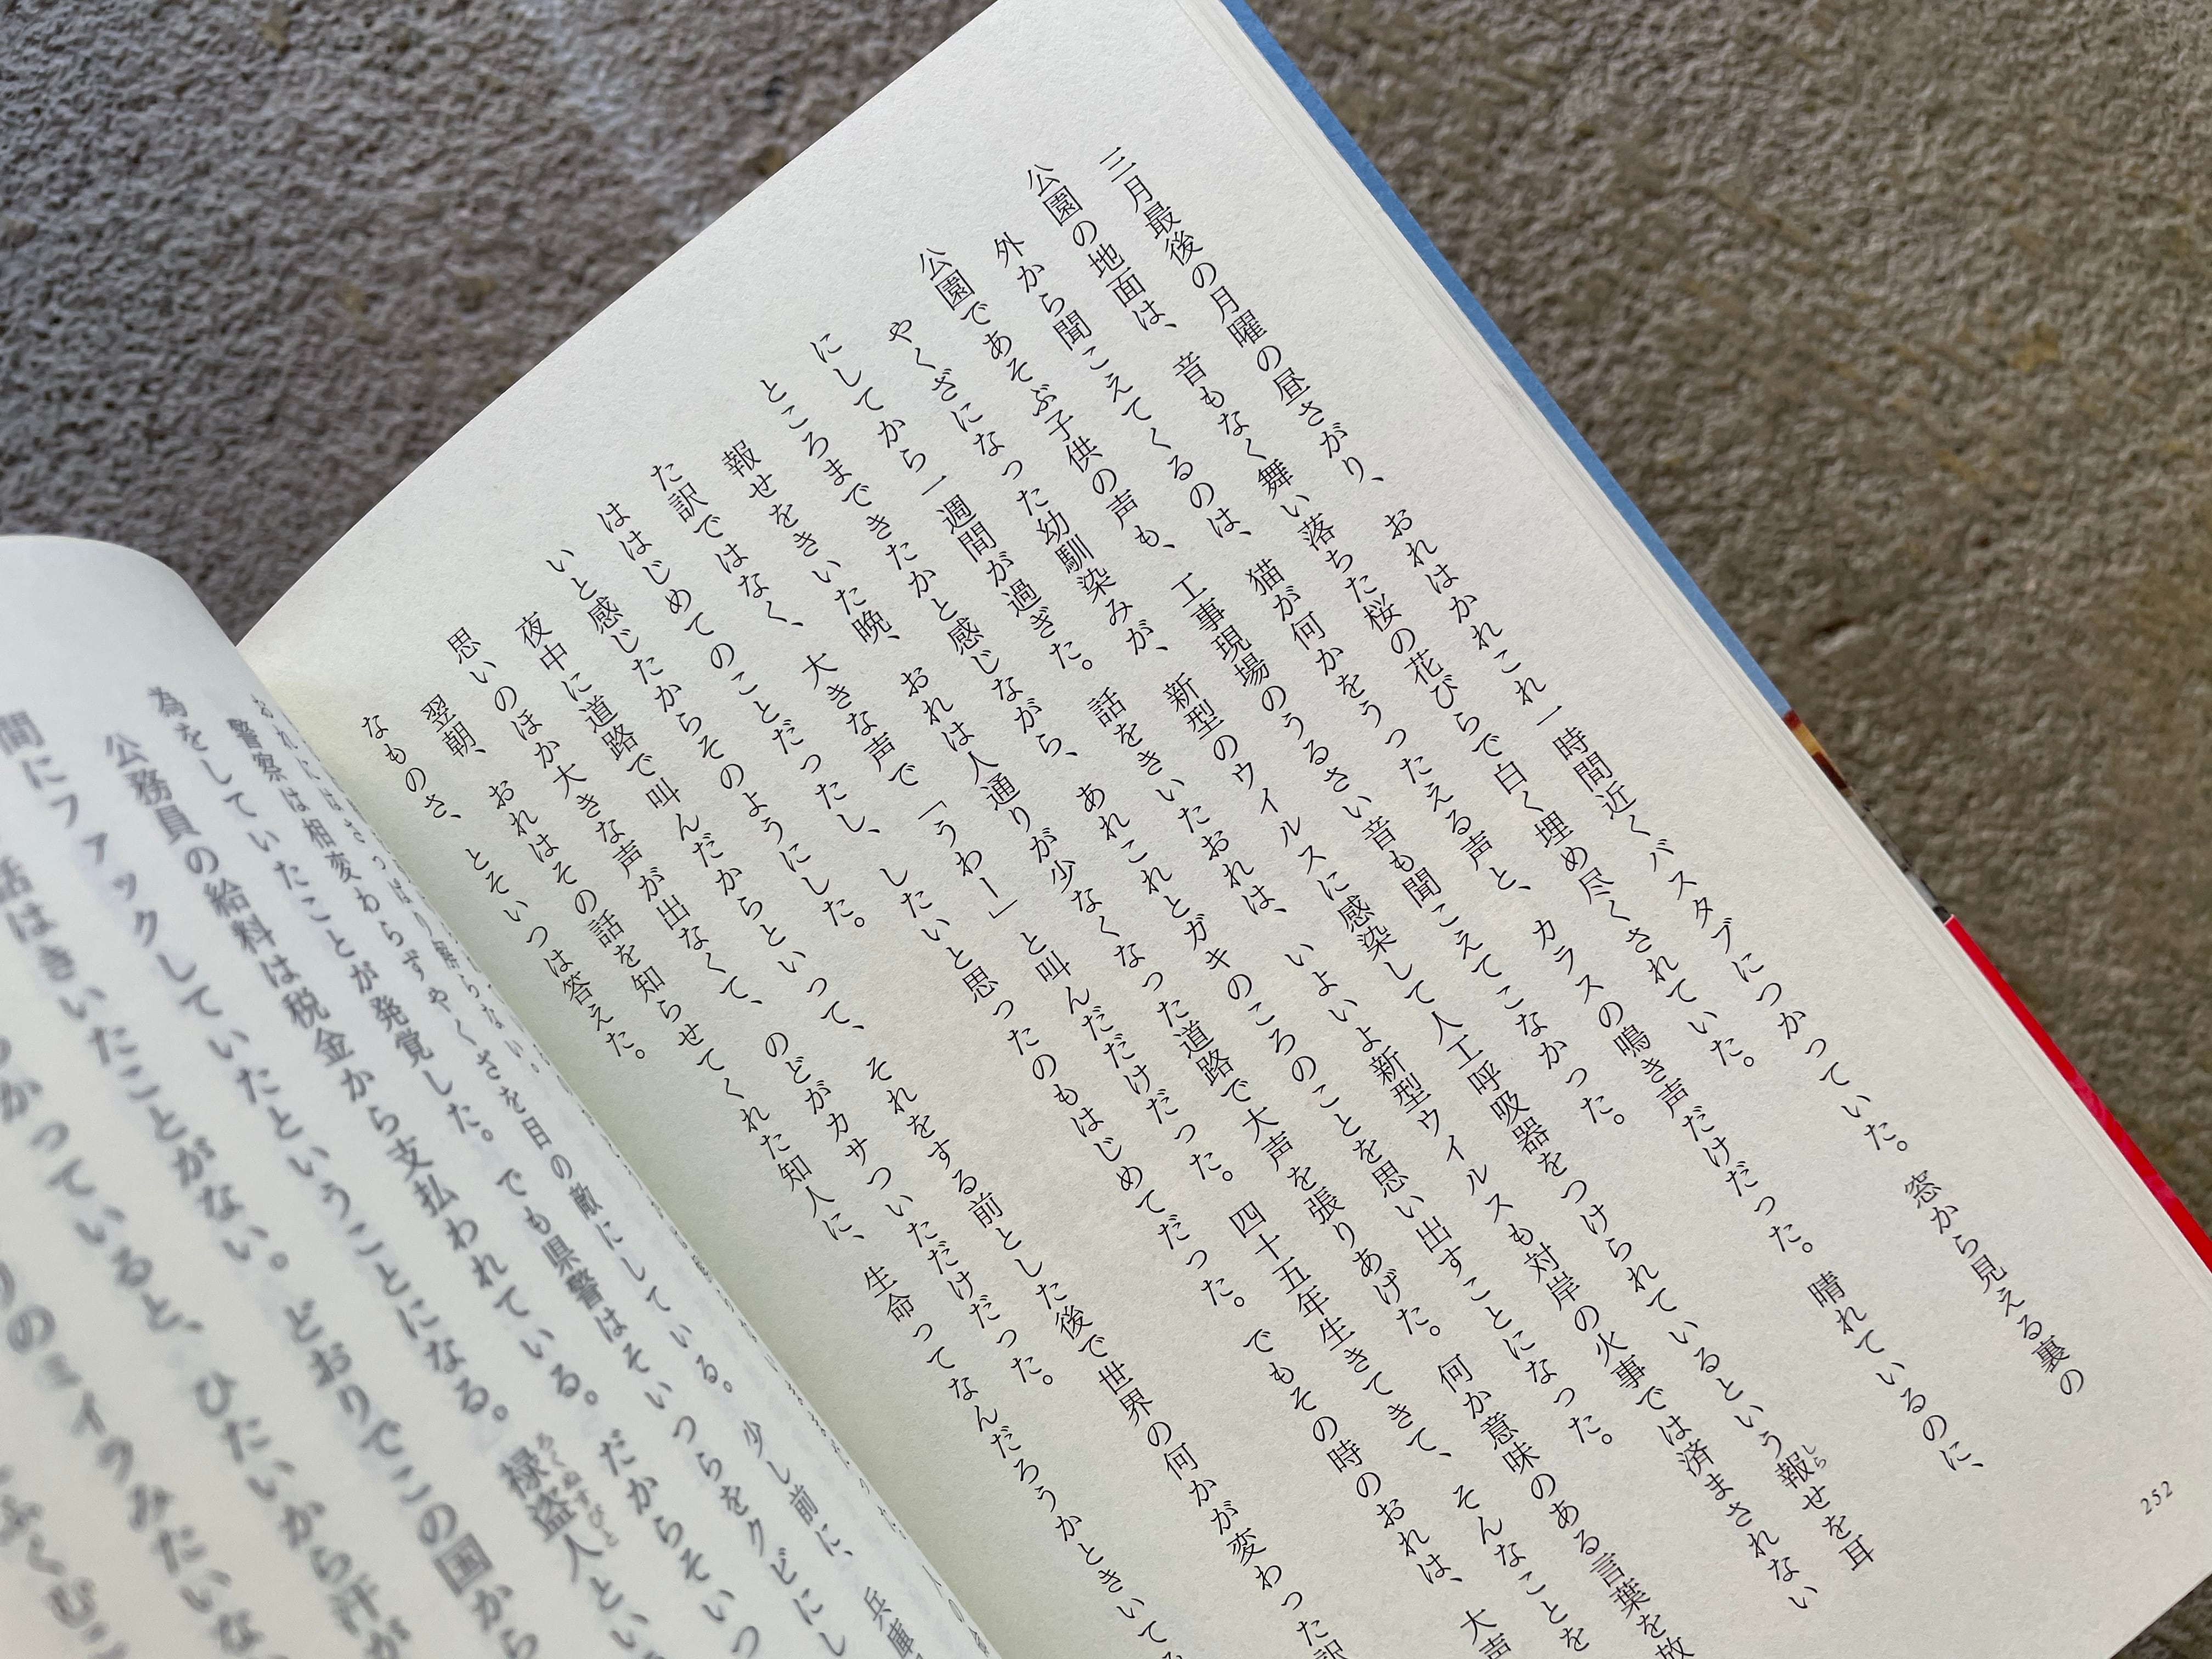 三月最後の月曜の昼さがり、おれはかれこれ一時間近くバスタブにつかっていた。窓から見える裏の
公園の地面は、音もなく舞い落ちた桜の花びらで白く埋め尽くされていた。
外から聞こえてくるのは、猫が何かをうったえる声と、カラスの鳴き声だけだった。晴れているのに、
公園であそぶ子供の声も、工事現場のうるさい音も聞こえてこなかった。
やくざになった幼馴染みが、新型のウイルスに感染して人工呼吸器をつけられているという報せを耳
にしてから一週間が過ぎた。話をきいたおれは、いよいよ新型ウイルスも対岸の火事では済まされない
ところまできたかと感じながら、あれこれとガキのころのことを思い出すことになった。
報せをきいた晩、おれは人通りが少なくなった道路で大声を張りあげた。何か意味のある言葉を放
た訳ではなく、大きな声で「うわー」と叫んだだけだった。四十五年生きてきて、そんなことを
ははじめてのことだったし、したいと思ったのもはじめてだった。でもその時のおれは、大声
いと感じたからそのようにした。
夜中に道路で叫んだからといって、それをする前とした後で世界の何かが変わった訳
思いのほか大きな声が出なくて、のどがカサついただけだった。
翌朝、おれはその話を知らせてくれた知人に、生命ってなんだろうかときいてみ
なものさ、とそいつは答えた。
252
しら
警察は相変わらずやくざを目の敵にしている。少し前に、兵庫
為をしていたことが発覚した。でも県警はそいつらをクビにし
公務員の給料は税金から支払われている。だからそいつ
間にファックしていたということになる。禄盗人とい
ろくぬすびと
話はきいたことがない。どおりでこの国から
かっていると、ひたいから汗が
りのミイラみたいな
ふくむこ